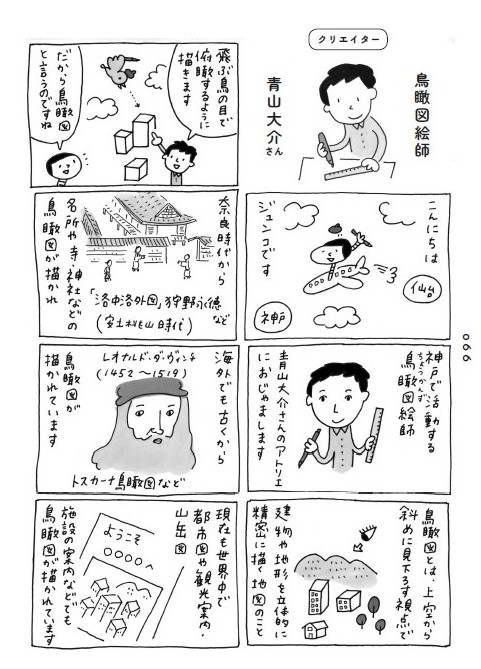 クリエイター
鳥瞰図絵師
青山大介さん
こんにちは
ジュンコです
仙台
神戸
神戸で活動する
鳥瞰図絵師
ちょうかんずえし
青山大介さんのアトリエ
におじゃまします
鳥瞰図とは、上空から
斜めに見下ろす視点で
建物や地形を立体的に
精密に描く地図のこと
飛ぶ鳥の目で
俯瞰するように
描きます
だから鳥瞰図
と言うのですね
奈良時代から
「洛中洛外図」狩野永徳など
(安土桃山時代)
名所や寺・神社などの
鳥瞰図が描かれ
海外でも古くから
レオナルド・ダ・ヴィンチ
(1452〜1519)
トスカーナ鳥瞰図など
鳥瞰図が
描かれています
現在も世界中で
都市図や観光案内・
山岳図
ようこそ
○○○○へ
施設の案内などでも
鳥瞰図が描かれています
066